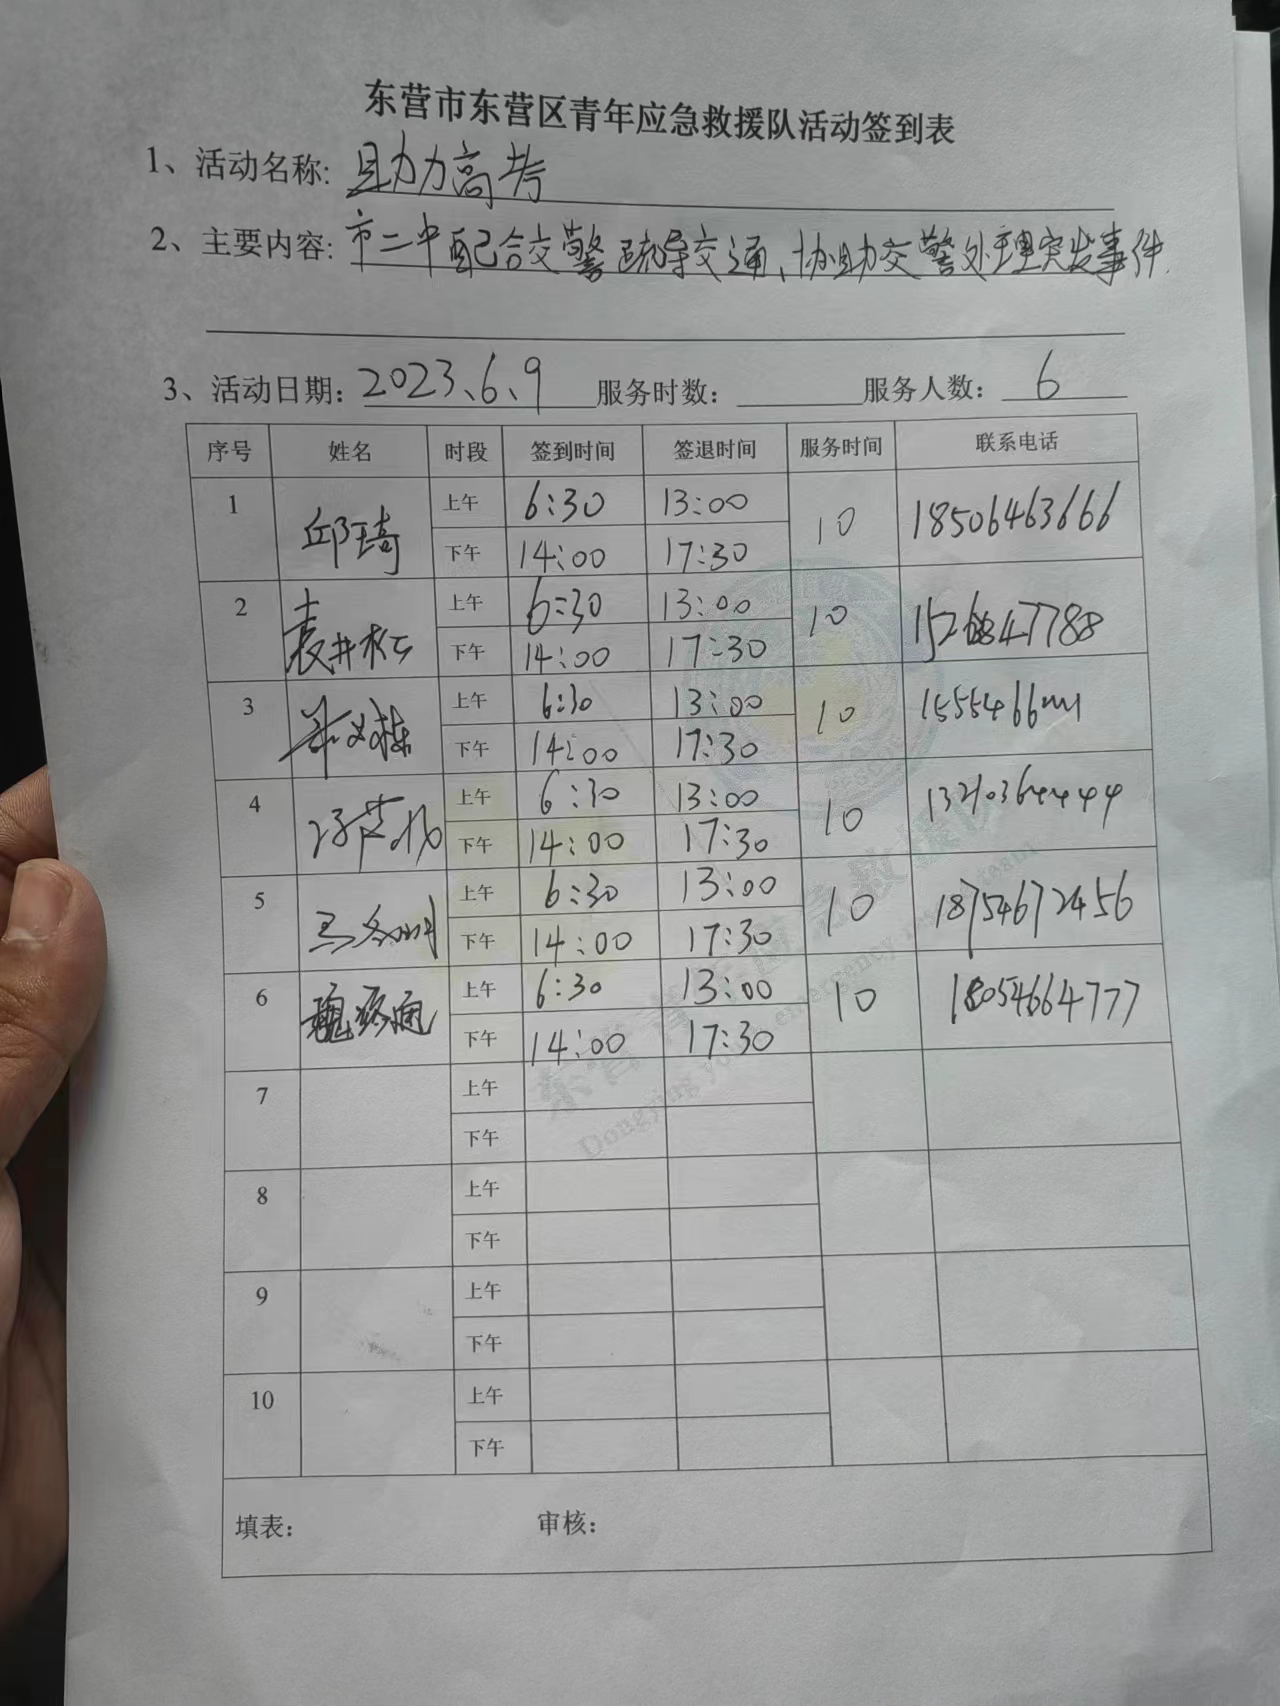 东营市东营区青年应急救援队活动签到表
1、活动名称: 助力高考
2、主要内容: 市二中配合交警疏导交通、协助交警处理突发事件.
3、活动日期: 2023、6、9 服务时数: 服务人数: 6
序号 姓名 时段 签到时间 签退时间 服务时间 联系电话
1 邱琦 上午 6:30 13:00 10 18506463666
下午 14:00 17:30
2 上午 6:30 13:00 10
下午 14:00 17:30
3 上午 6:30 13:00 10
下午 14:00 17:30
4 上午 6:30 13:00 10 13210364444
下午 14:00 17:30
5 上午 6:30 13:00 10 18754672456
下午 14:00 17:30
6 上午 6:30 13:00 10 18054664777
下午 14:00 17:30
7 上午
下午
8 上午
下午
9 上午
下午
10 上午
下午
填表: 审核: